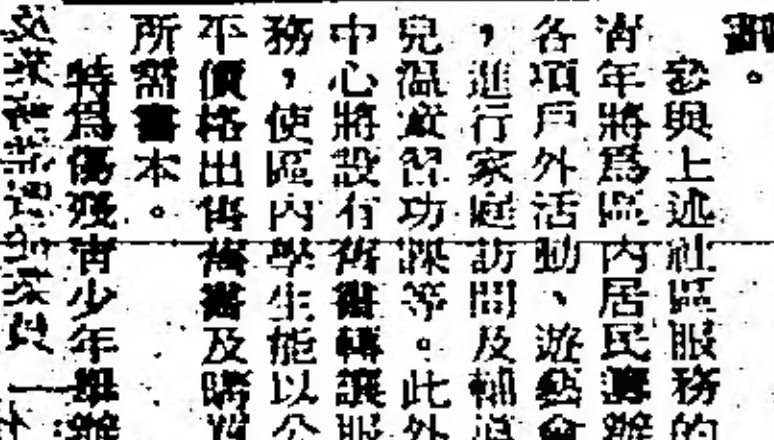 劃。
參與上述社區服務的
青年將爲區內居民籌辦
各項戶外活動、遊藝會
，進行家庭訪問及輔導
兒溫習功課等。此外
中心將設有舊書轉讓服
務，使區內學生能以公
平價格出售舊書及購買
所需書本。
特爲傷殘青少年舉辦